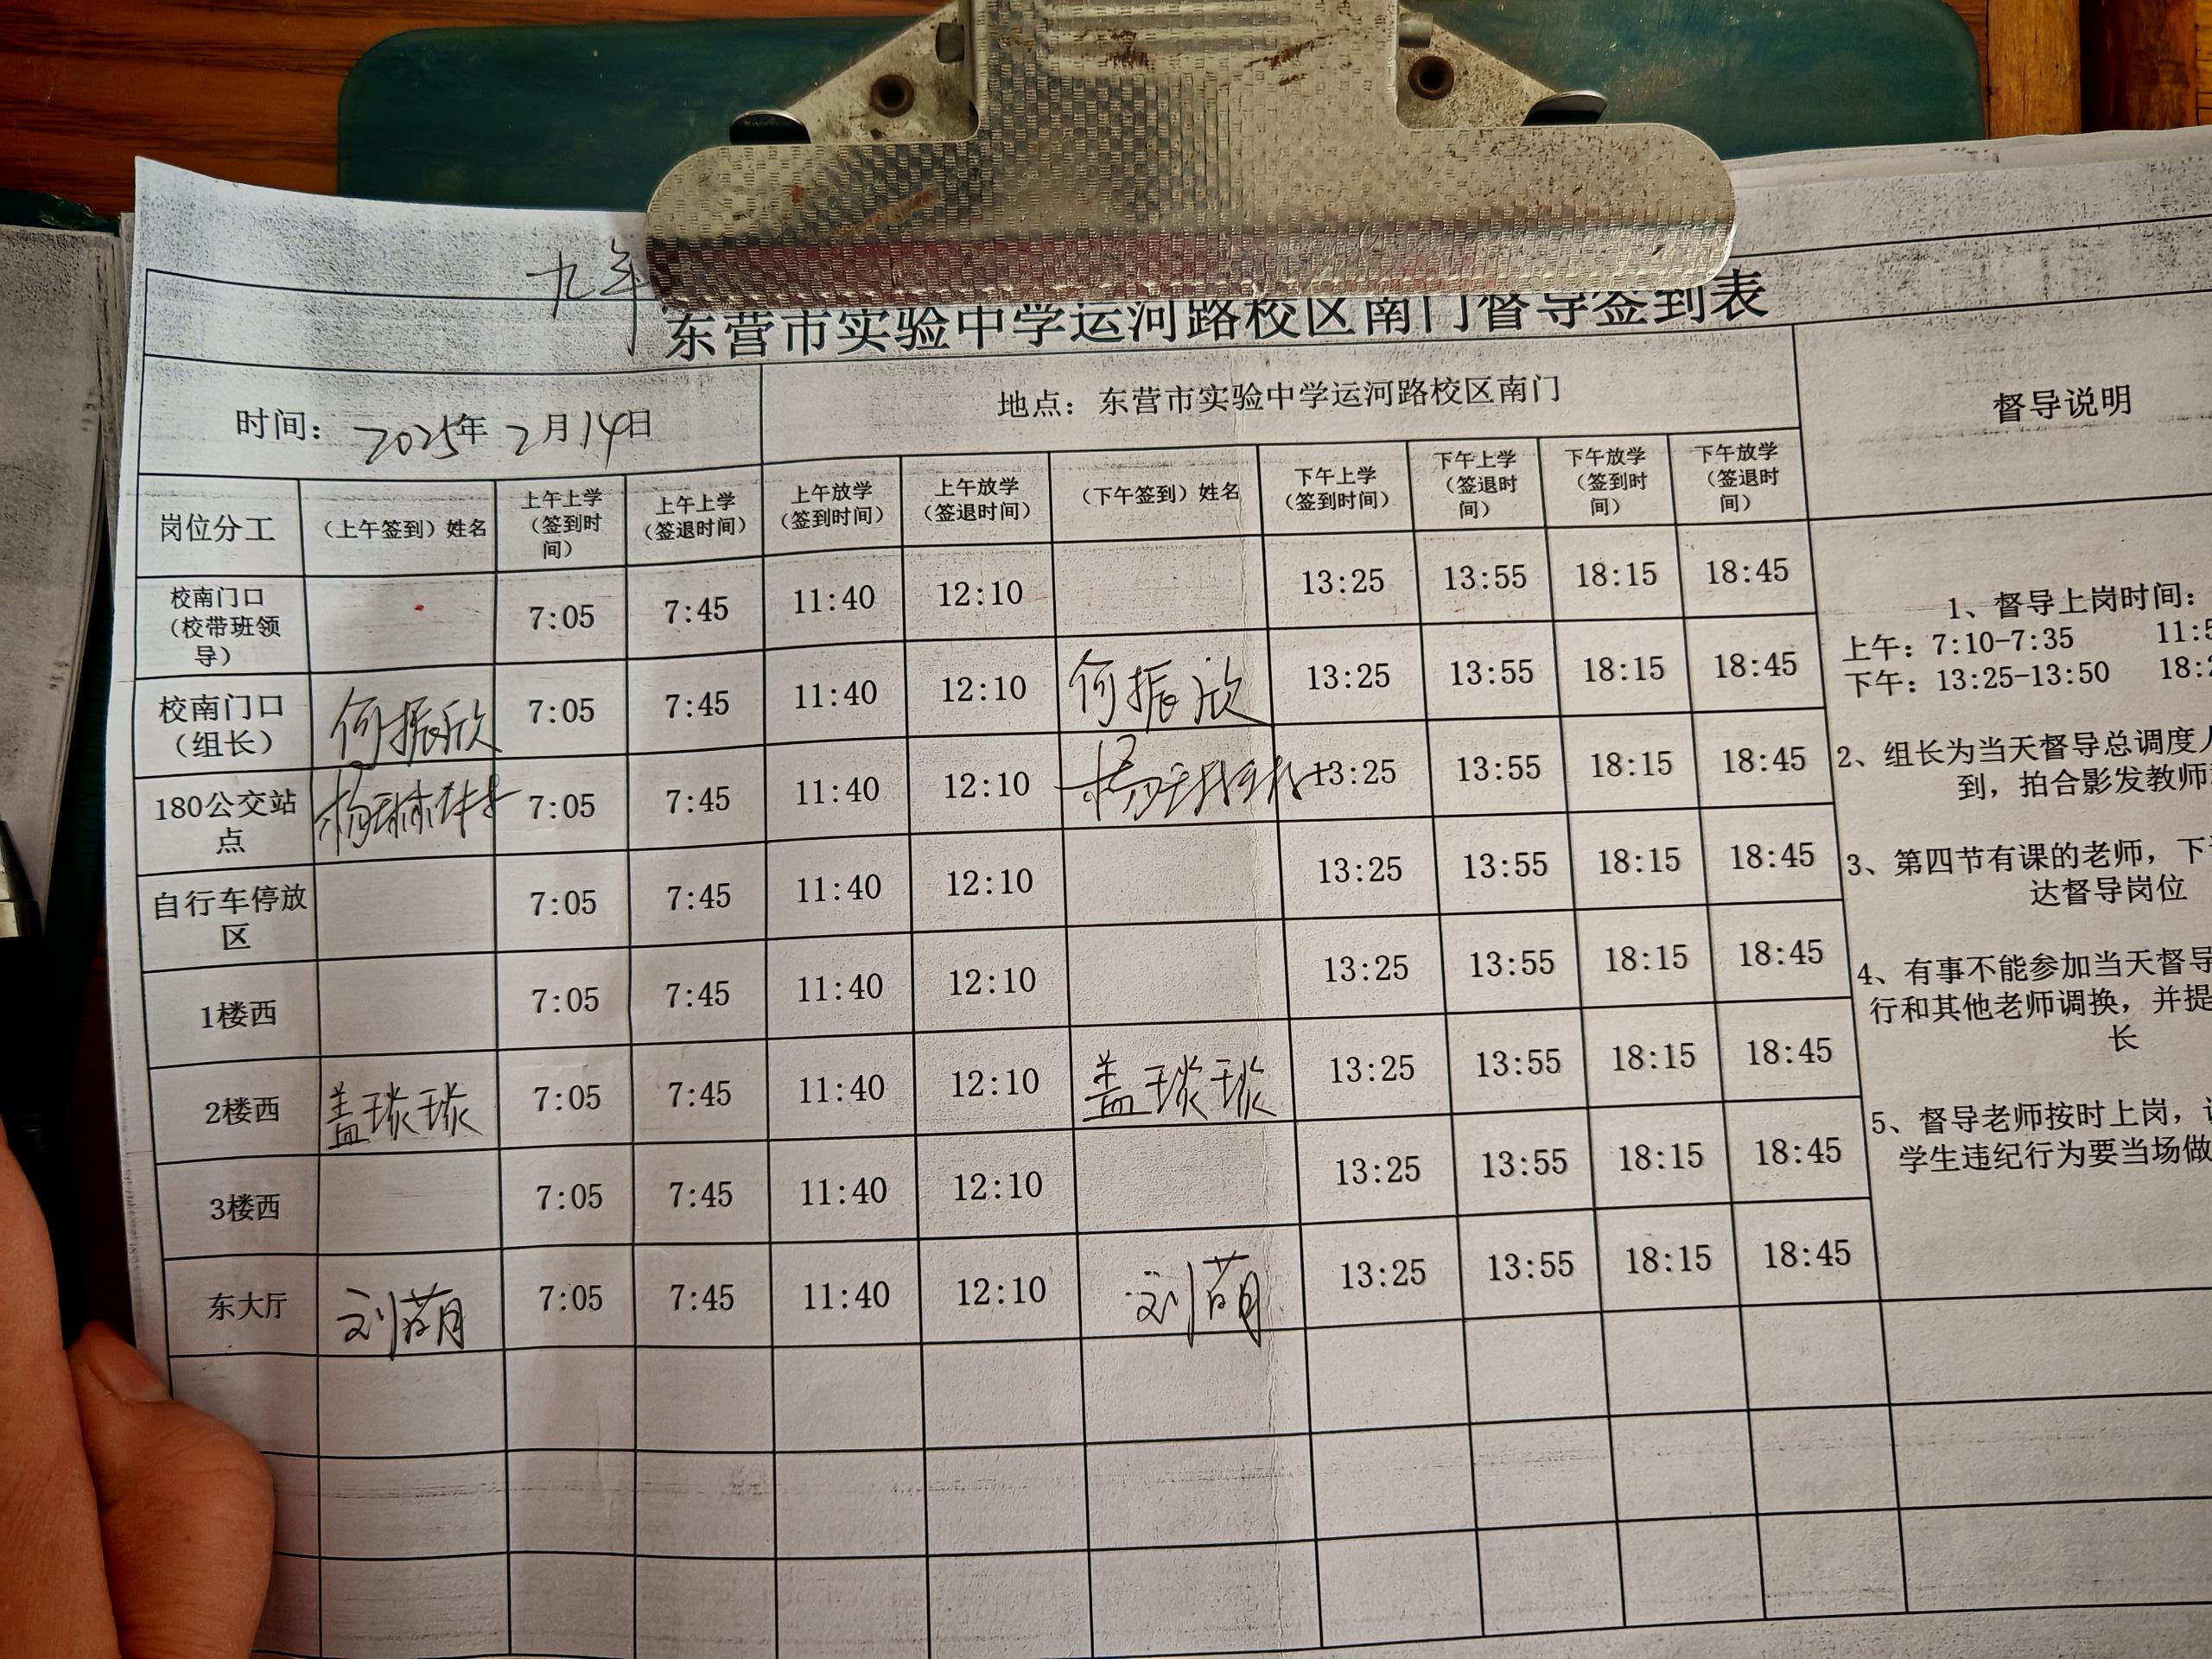 九年
东营市实验中学运河路校区南门督导签到表
时间：2025年2月14日 地点：东营市实验中学运河路校区南门 督导说明
岗位分工 （上午签到）姓名 上午上学（签到时间） 上午上学（签退时间） 上午放学（签到时间） 上午放学（签退时间） （下午签到）姓名 下午上学（签到时间） 下午上学（签退时间） 下午放学（签到时间） 下午放学（签退时间）
校南门口（校带班领导） 7:05 7:45 11:40 12:10 13:25 13:55 18:15 18:45
校南门口（组长） 何振欣 7:05 7:45 11:40 12:10 何振欣 13:25 13:55 18:15 18:45
180公交站点 杨琳琳 7:05 7:45 11:40 12:10 杨 13:25 13:55 18:15 18:45
自行车停放区 7:05 7:45 11:40 12:10 13:25 13:55 18:15 18:45
1楼西 7:05 7:45 11:40 12:10 13:25 13:55 18:15 18:45
2楼西 盖琰琰 7:05 7:45 11:40 12:10 盖琰琰 13:25 13:55 18:15 18:45
3楼西 7:05 7:45 11:40 12:10 13:25 13:55 18:15 18:45
东大厅 刘萌 7:05 7:45 11:40 12:10 刘萌 13:25 13:55 18:15 18:45
1、督导上岗时间：
上午：7:10-7:35 11:5
下午：13:25-13:50 18:2
2、组长为当天督导总调度
到，拍合影发教师
3、第四节有课的老师，下
达督导岗位
4、有事不能参加当天督导
行和其他老师调换，并提
长
5、督导老师按时上岗，
学生违纪行为要当场做